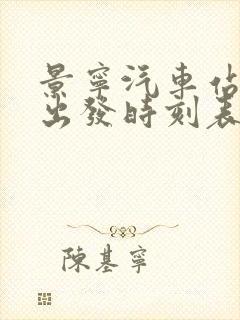 景寧汽車佔
出發時刻表
陳基寧